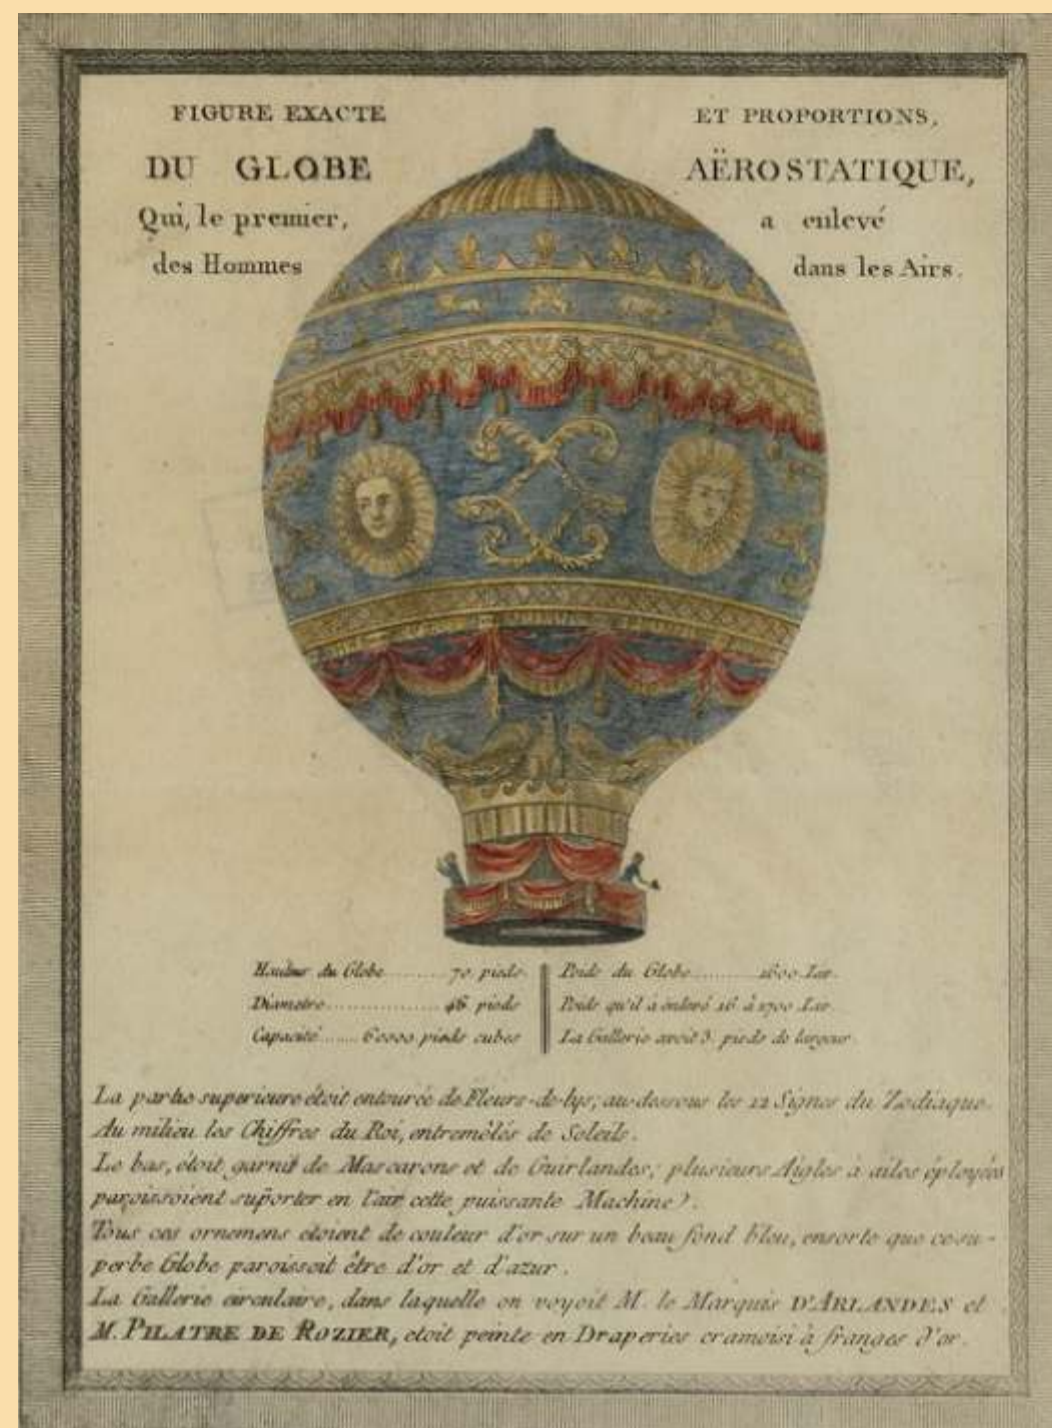 FIGURE EXACTE ET PROPORTIONS,
DU GLOBE AËROSTATIQUE,
Qui, le premier, a enlevé
des Hommes dans les Airs.
Hauteur du Globe ........ 70 pieds.
Diametre ................ 46 pieds
Capacité ....... 60000 pieds cubes
Poids du Globe .......... 1600 Liv.
Poids qu'il a enlevé 16 à 1700 Liv.
La Gallerie avoit 3. pieds de largeur.
La partie superieure étoit entourée de Fleurs-de-lys; au-dessous les 12 Signes du Zodiaque.
Au milieu les Chiffres du Roi, entremêlés de Soleils.
Le bas, étoit garnit de Mascarons et de Guirlandes; plusieurs Aigles à ailes éployées
paroissoient suporter en l'air cette puissante Machine.
Tous ces ornemens etoient de couleur d'or sur un beau fond bleu, ensorte que ce su-
perbe Globe paroissoit être d'or et d'azur.
La Gallerie circulaire, dans laquelle on voyoit M. le Marquis D'ARLANDES et
M. PILATRE DE ROZIER, etoit peinte en Draperies cramoisi à franges d'or.